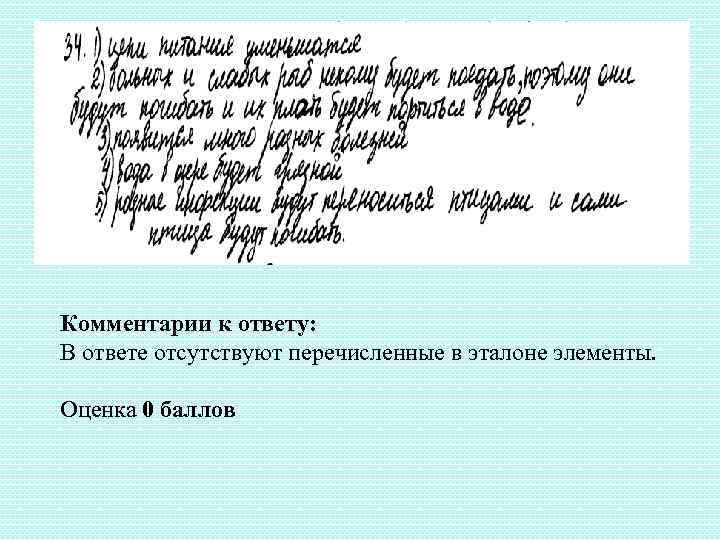 34. 1) цепи питания уменьшатся
2) вольных и слабых рыб некому будет поедать, поэтому они
будут погибать и их плоть будет портиться в воде.
3) появится много разных болезней
4) вода в озере будет грязной
5) разные инфекции будут переноситься птицами и сами
птица будут погибать.
Комментарии к ответу:
В ответе отсутствуют перечисленные в эталоне элементы.
Оценка 0 баллов